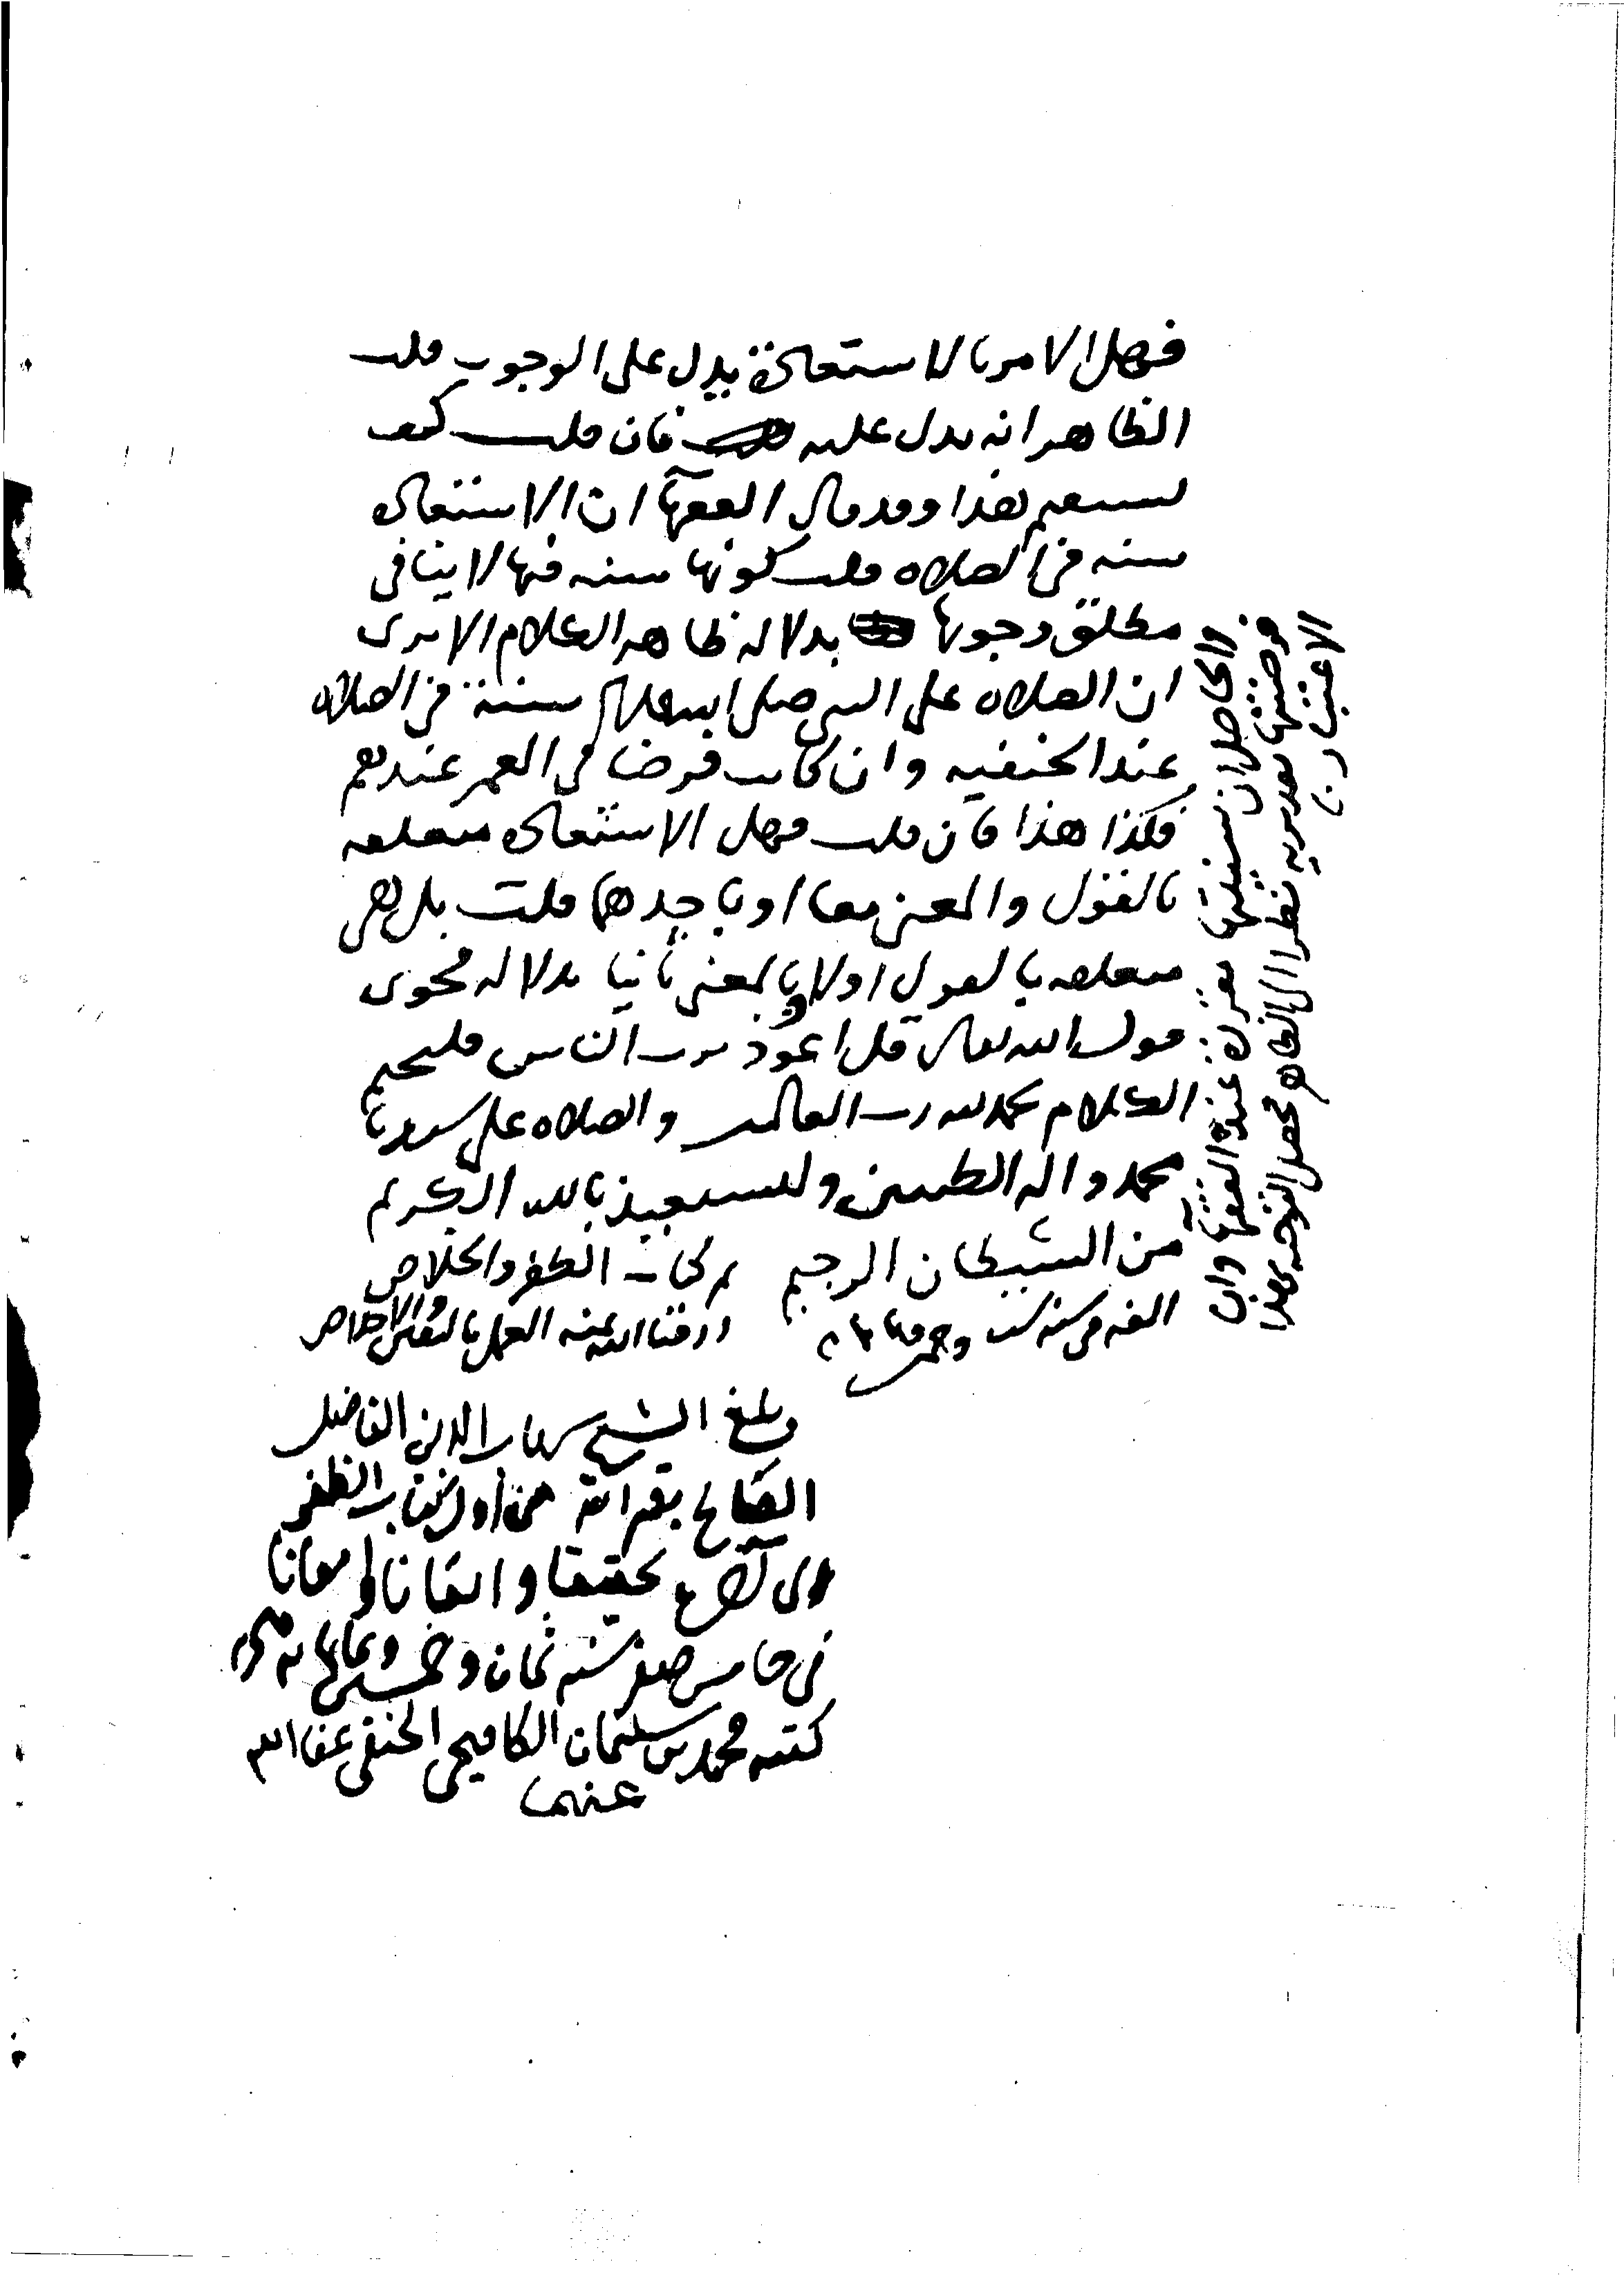 فهل الامر بالاستعاذة يدل على الوجوب قلت
الظاهر انه يدل عليه فان قلت كيف
يستقيم هذا وقد قال الفقهآ ان الاستعاذه
سنه في الصلاه قلت كونها سنه فيها لا ينافي
مطلق وجوبها بدلاله ظاهر الكلام الا يرى
ان الصلاه على النبي صلى الله عليه سنة في الصلاه
عند الحنفيه وان كانت فرضا في العمر عندهم
فكذا هذا فان قلت فهل الاستعاذه متعلقه
بالقول والمعنى معا او باحدهما قلت بل هي
متعلقه بالقول اولا وبالمعنى ثانيا بدلاله فحوى
قول الله تعالى قل اعوذ برب الناس فليختم
الكلام بحمد لله رب العالمين والصلاه على سيدنا
محمد واله الطيبين وليستعيذ بالله الكريم
من الشيطان الرجيم
الفه في سنه ست وخمسين
تم كتاب الظفر والخلاص
رزقنا الله بمنه العمل بالتقى والاخلاص
وبلغ الشيخ شهاب الدين الفاضل
الصالح بقراته من اول كتاب الظفر
الى آخره تحقيقا واتقانا وامعانا
في خامس صفر سنه ثمان وخمسين وثمانمايه
كتبه محمد بن سليمان الكافيجي الحنفي عفا الله
عنهما
والحاصل ان سنيتها مقررة عند الفقهآ وان
فرضيتها نظرا الى الظاهر فحصل التوجيه بهذا
الاعتبار